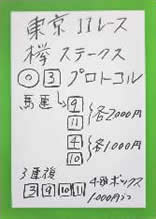 東京11レース
欅ステークス
◎ 3 プロトコル
馬連 9
11
各2000円
4
10
各1000円
3連複
3 9 10 11
4頭ボックス
1000円ずつ